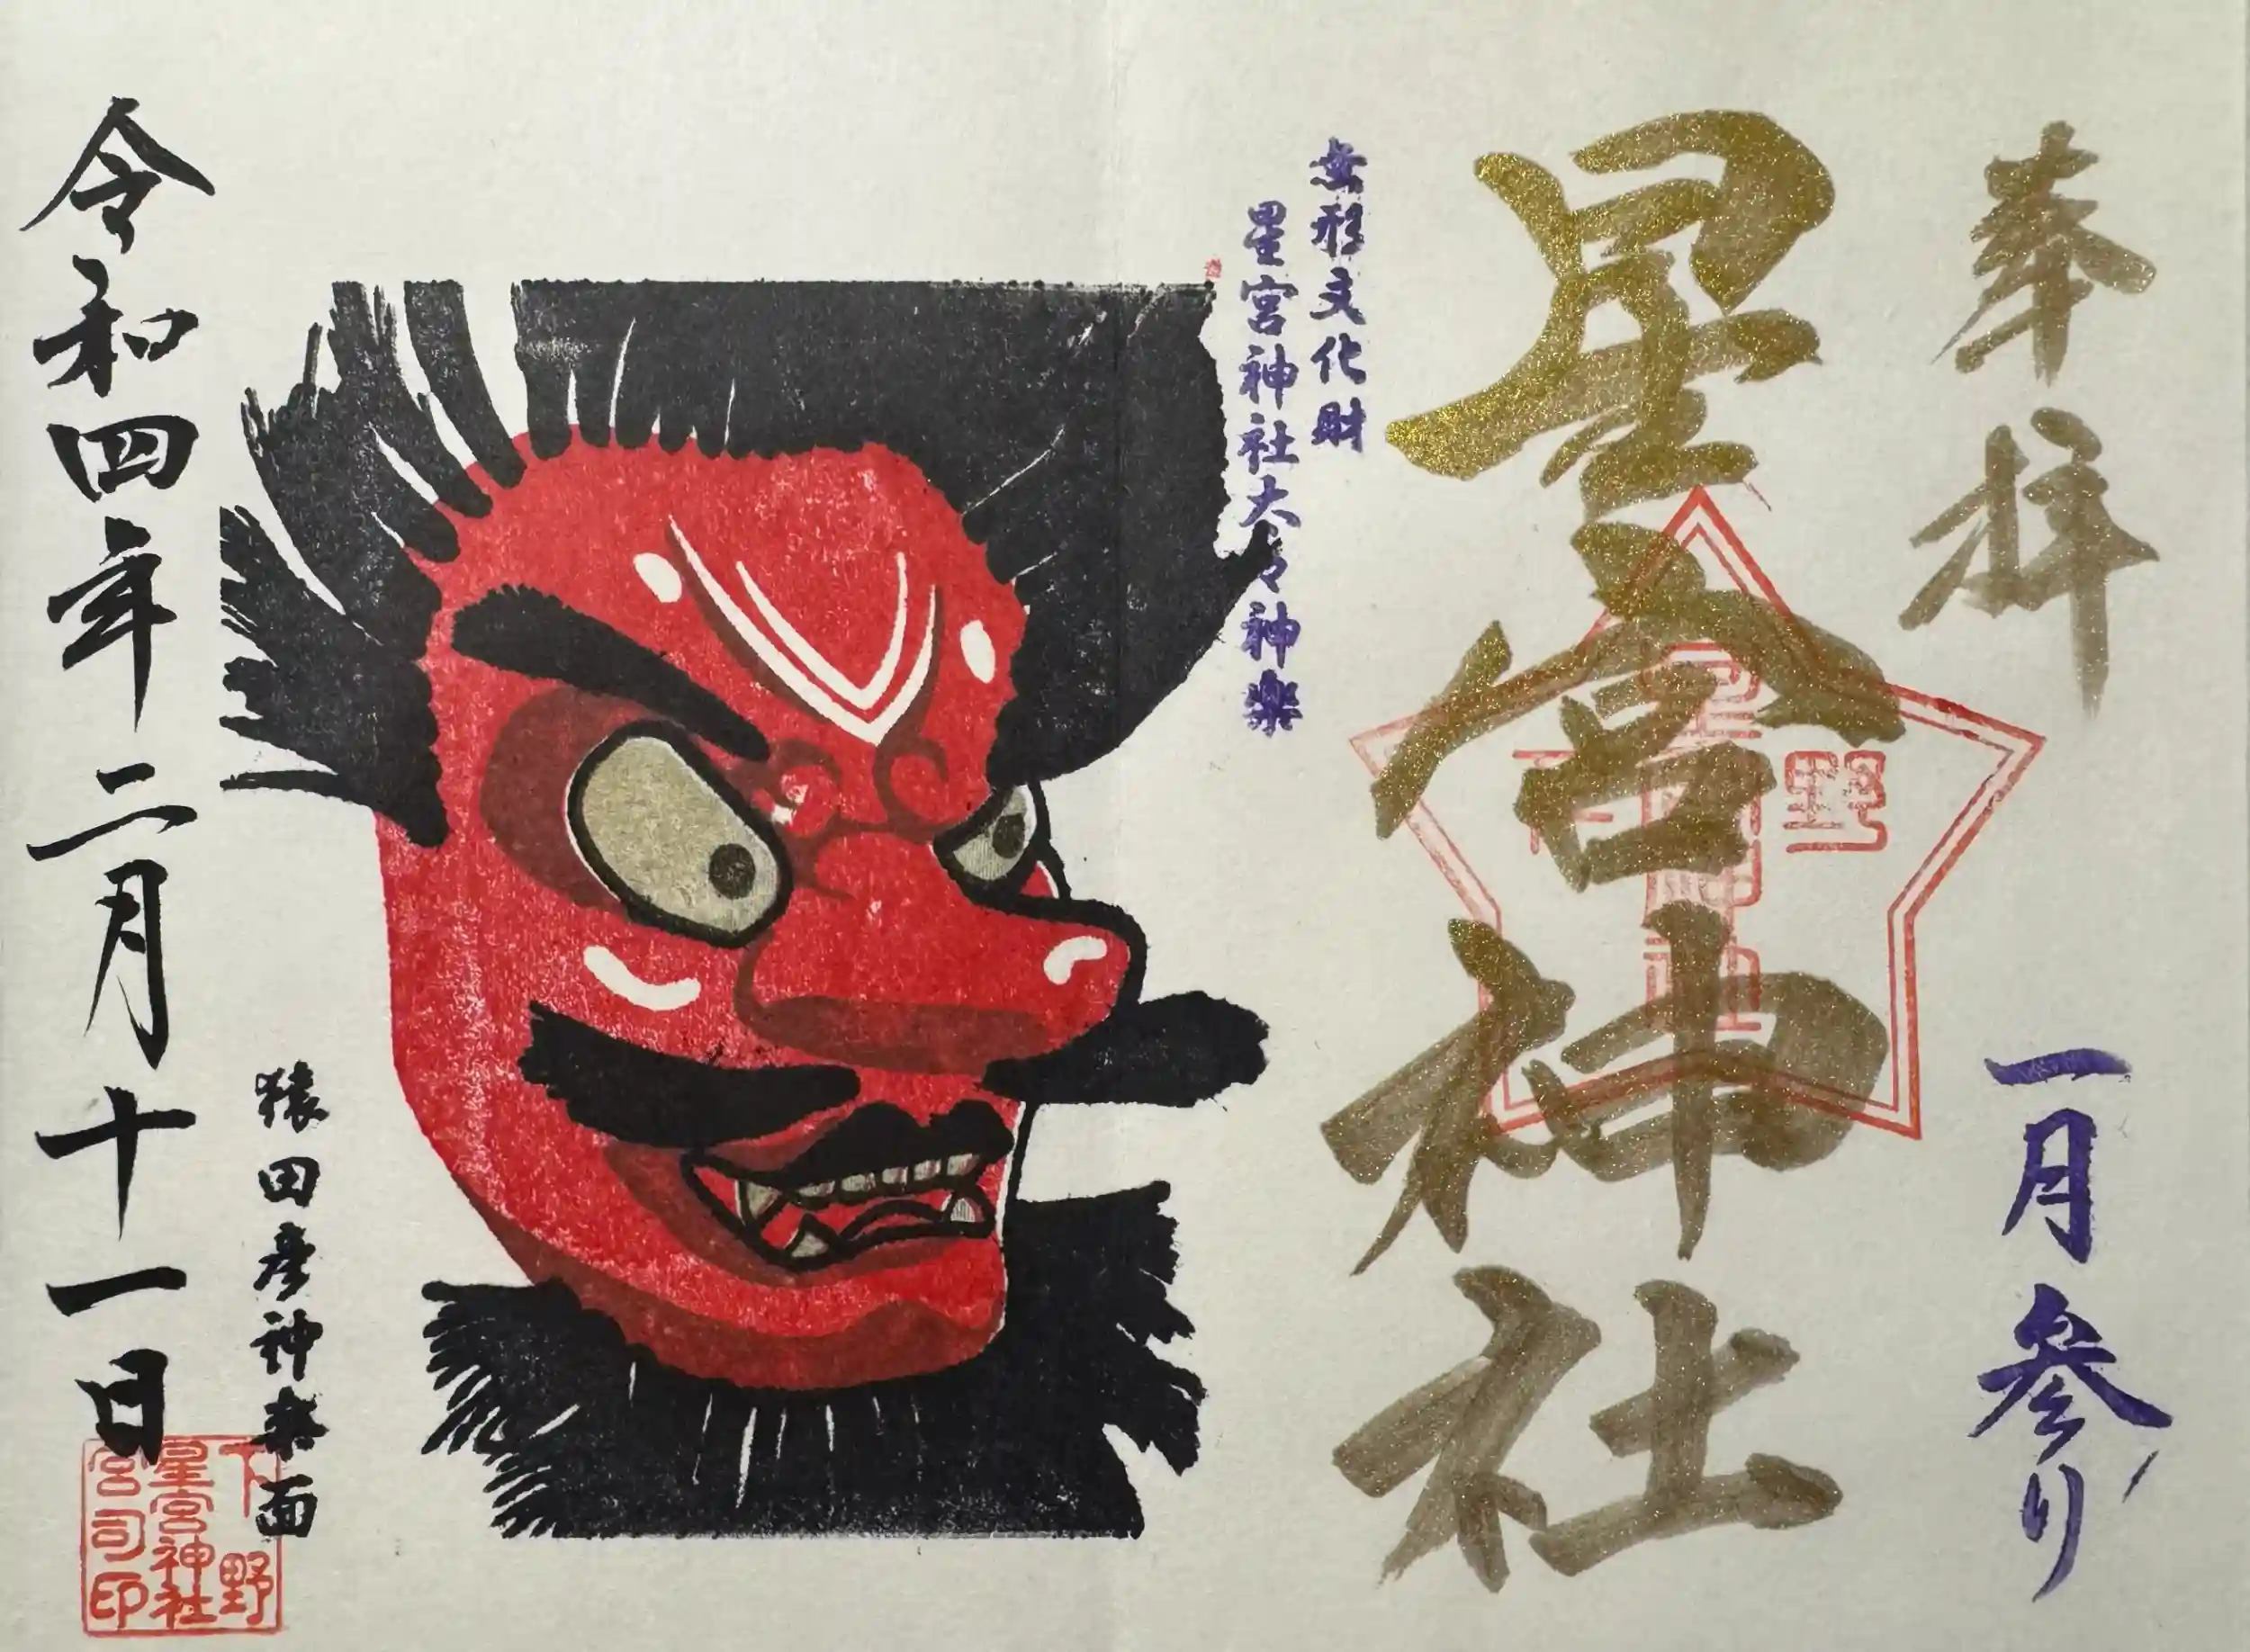 奉拝
一月参り
星宮神社
下野
星宮神社
無形文化財
星宮神社大々神楽
猿田彦神楽面
令和四年二月十一日
下野
星宮神社
宮司印